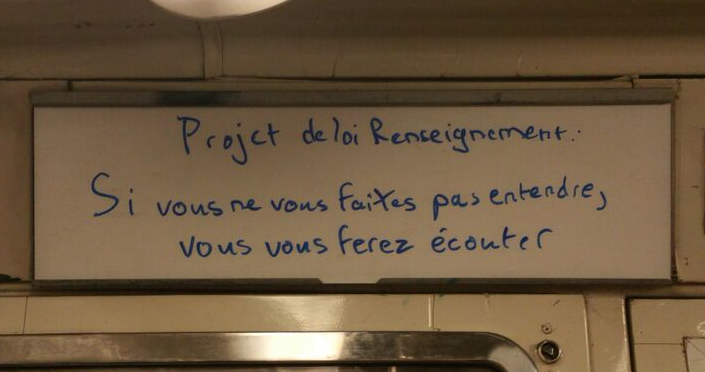 Projet de loi Renseignement:
Si vous ne vous faites pas entendre,
vous vous ferez écouter